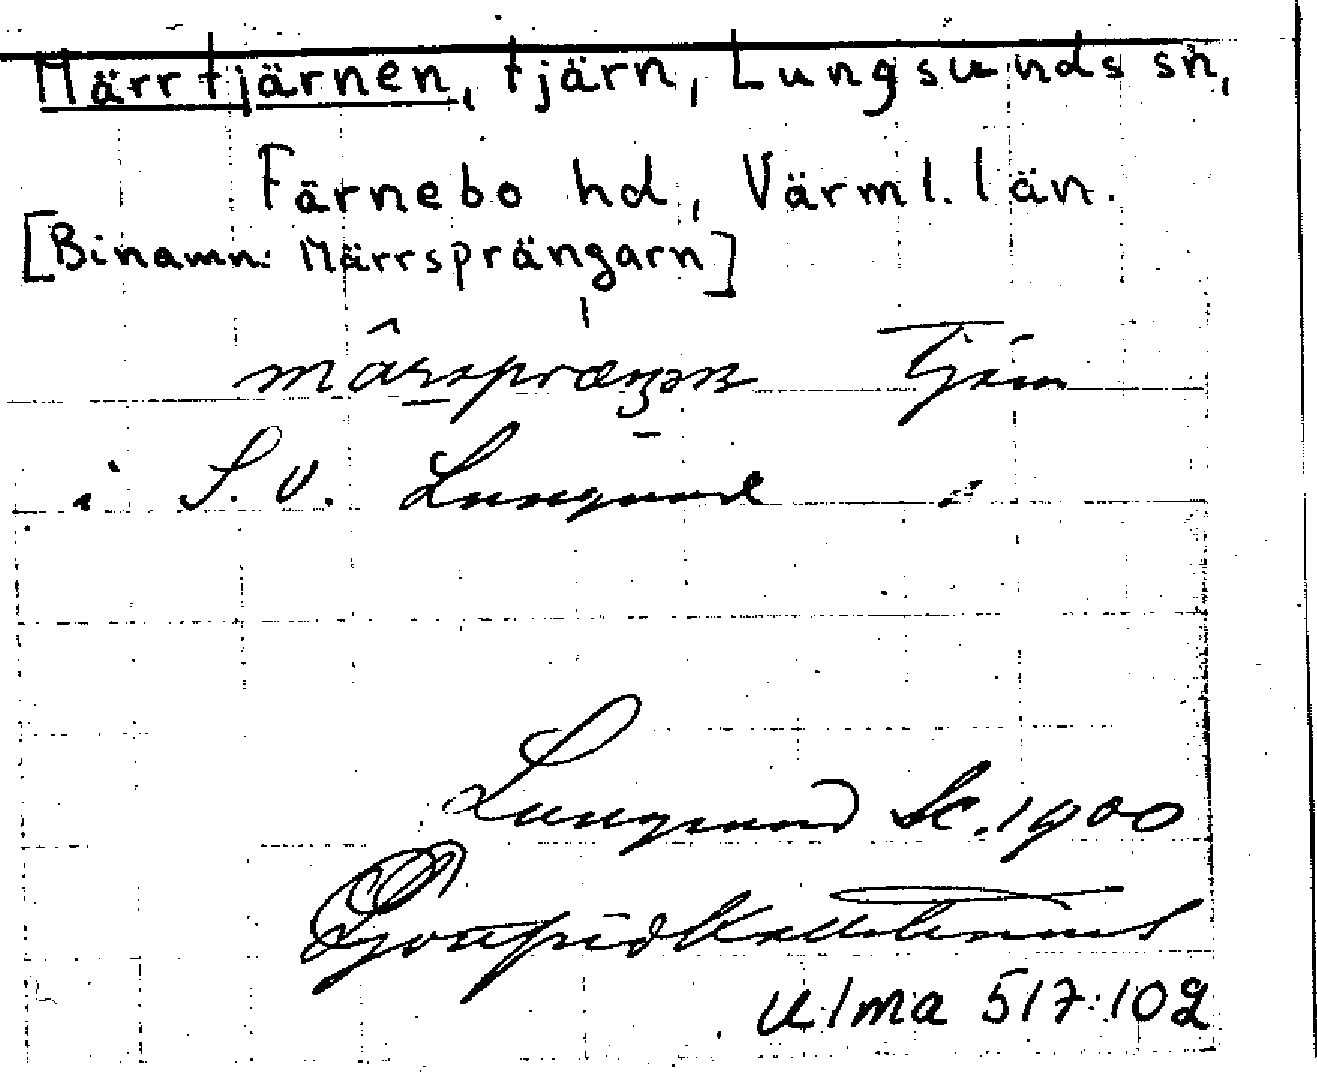 Märrtjärnen, tjärn, Lungsunds sn,
Färnebo hd, Värml. län.
[Binamn: Märrsprängarn]
Tjärn
i S.V. Lungsund
Lungsund 1900
ulma 517:102